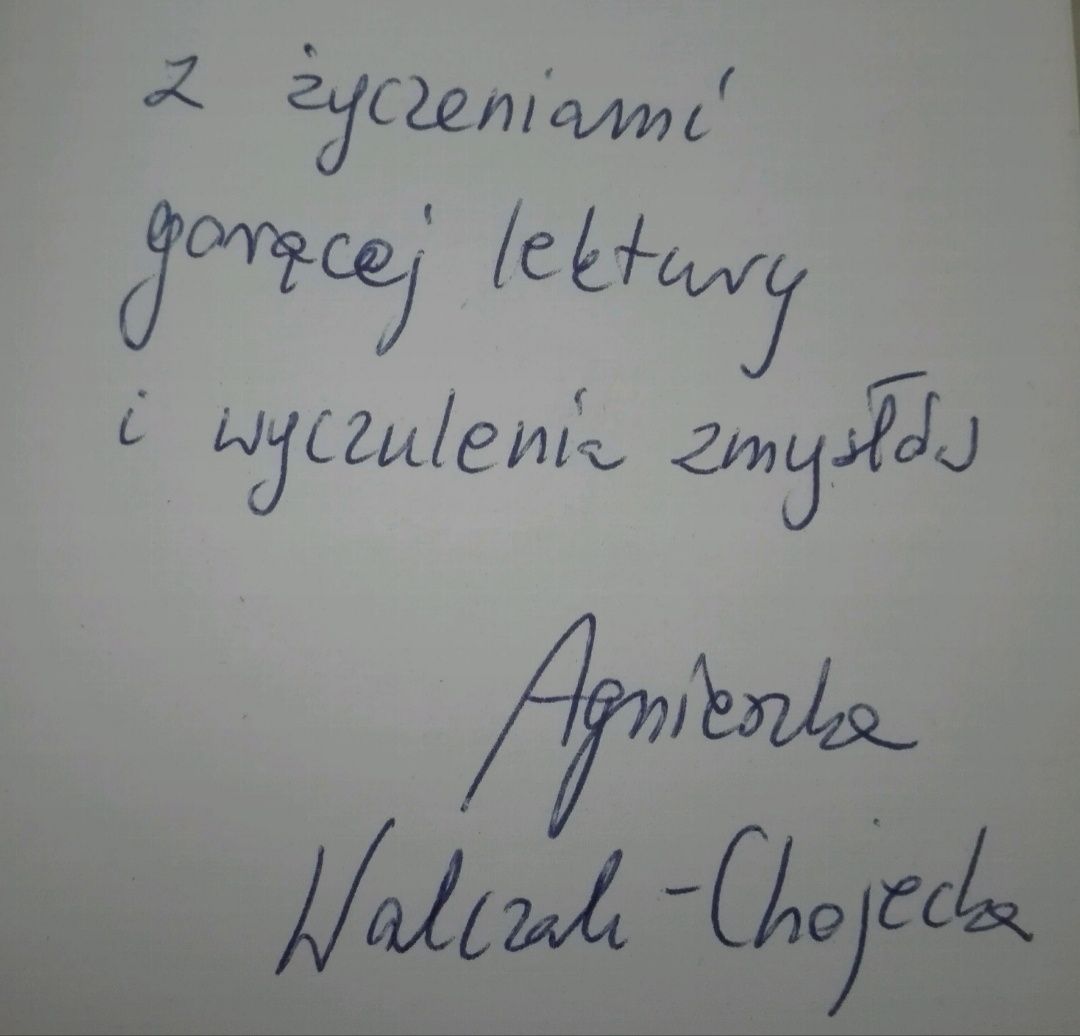 z życzeniami
gorącej lektury
i wyczulenia zmysłów
Agnieszka
Walczak-Chojecka